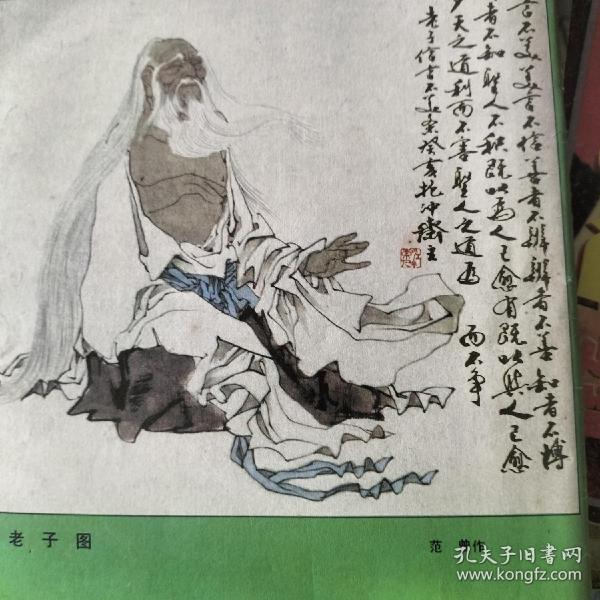 言不美美言不信善者不辩辩者不善知者不博
者不知圣人不积既以为人己愈有既以与人己愈
天之道利而不害圣人之道为而不争
老子信言不美章癸亥抱冲斋主
老子图
范曾作
孔夫子旧书网
www.kongfz.com